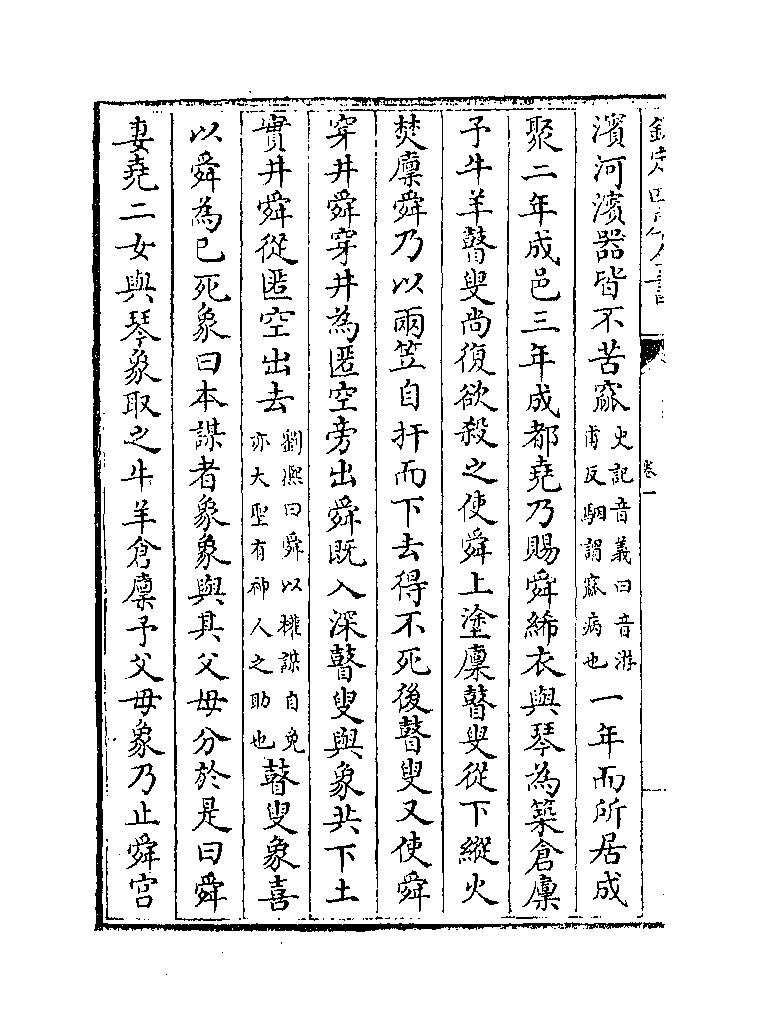 欽定四庫全書
卷一
濱河濱器皆不苦窳史記音義曰音游甫反駰謂窳病也一年而所居成
聚二年成邑三年成都堯乃賜舜絺衣與琴為築倉廩
予牛羊瞽叟尚復欲殺之使舜上塗廩瞽叟從下縱火
焚廩舜乃以兩笠自扞而下去得不死後瞽叟又使舜
穿井舜穿井為匿空旁出舜既入深瞽叟與象共下土
實井舜從匿空出去劉熙曰舜以權謀自免亦大聖有神人之助也瞽叟象喜
以舜為已死象曰本謀者象象與其父母分於是曰舜
妻堯二女與琴象取之牛羊倉廩予父母象乃止舜宫